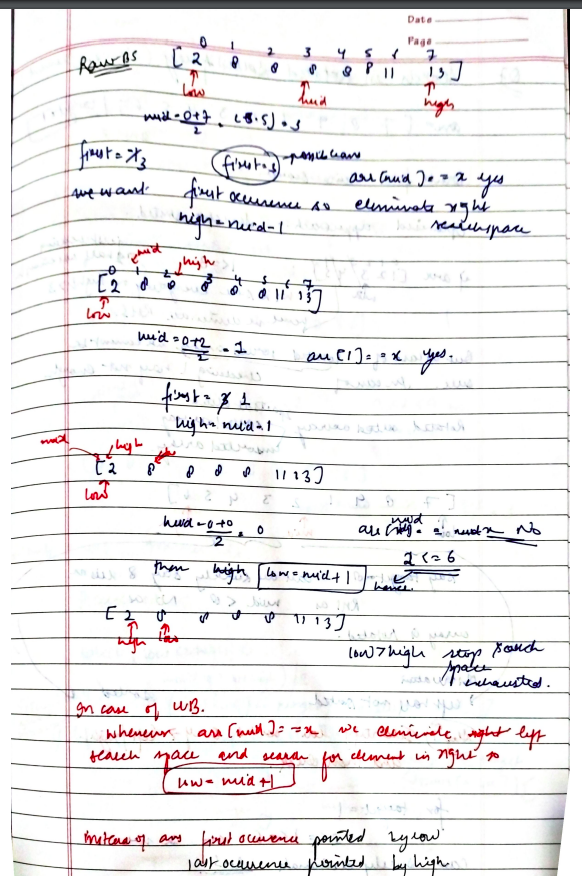 Date
Page
0 1 2 3 4 5 6 7
Raw BS [ 2 8 8 8 8 8 11 13 ]
Low mid high
mid = 0+7 / 2 = (3.5) = 3
first = 3 possible ans
arr[mid] == x yes
we want first occurence so eleminate right
high = mid-1 searchspace
mid high
0 1 2 3 4 5 6 7
[ 2 8 8 8 8 8 11 13 ]
Low
mid = 0+2 / 2 = 1 arr[1] == x yes.
first = 3 1
high = mid-1
mid high
[ 2 8 8 8 8 8 11 13 ]
Low
mid = 0+0 / 2 = 0 mid No
2 <= 6
then high low = mid+1 hence
[ 2 8 8 8 8 11 13 ]
high low
low > high stop search
space
exhausted.
In case of UB.
whenever arr[mid] == x we eleminate right left
search space and search for element in right so
low = mid+1
Instead of ans first occurence pointed by low
last occurence pointed by high